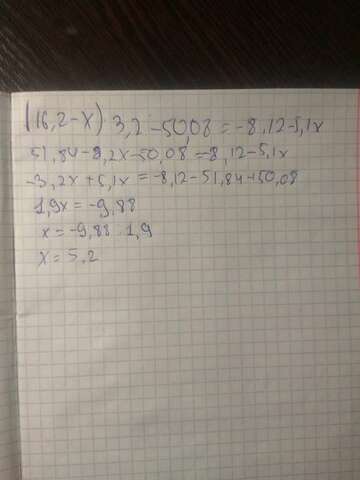 (16,2-x) 3,2-50,08=-8,12-5,1x
51,84-3,2x-50,08=-8,12-5,1x
-3,2x+5,1x=-8,12-51,84+50,08
1,9x=-9,88
x=-9,88:1,9
x=5,2